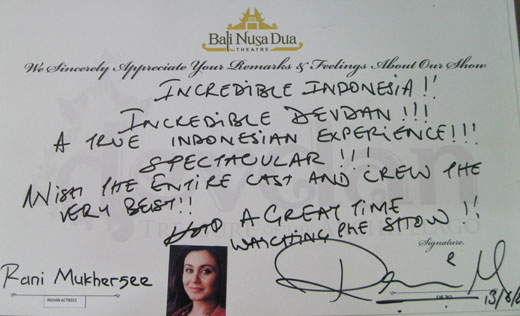 Bali Nusa Dua
THEATRE
We Sincerely Appreciate Your Remarks & Feelings About Our Show
INCREDIBLE INDONESIA!!
INCREDIBLE DEVDAN!!!
A TRUE INDONESIAN EXPERIENCE!!!
SPECTACULAR!!!
WISH THE ENTIRE CAST AND CREW THE
VERY BEST!!
HAD A GREAT TIME
WATCHING THE SHOW!!
devdan
Signature,
Rani Mukherjee
INDIAN ACTRESS